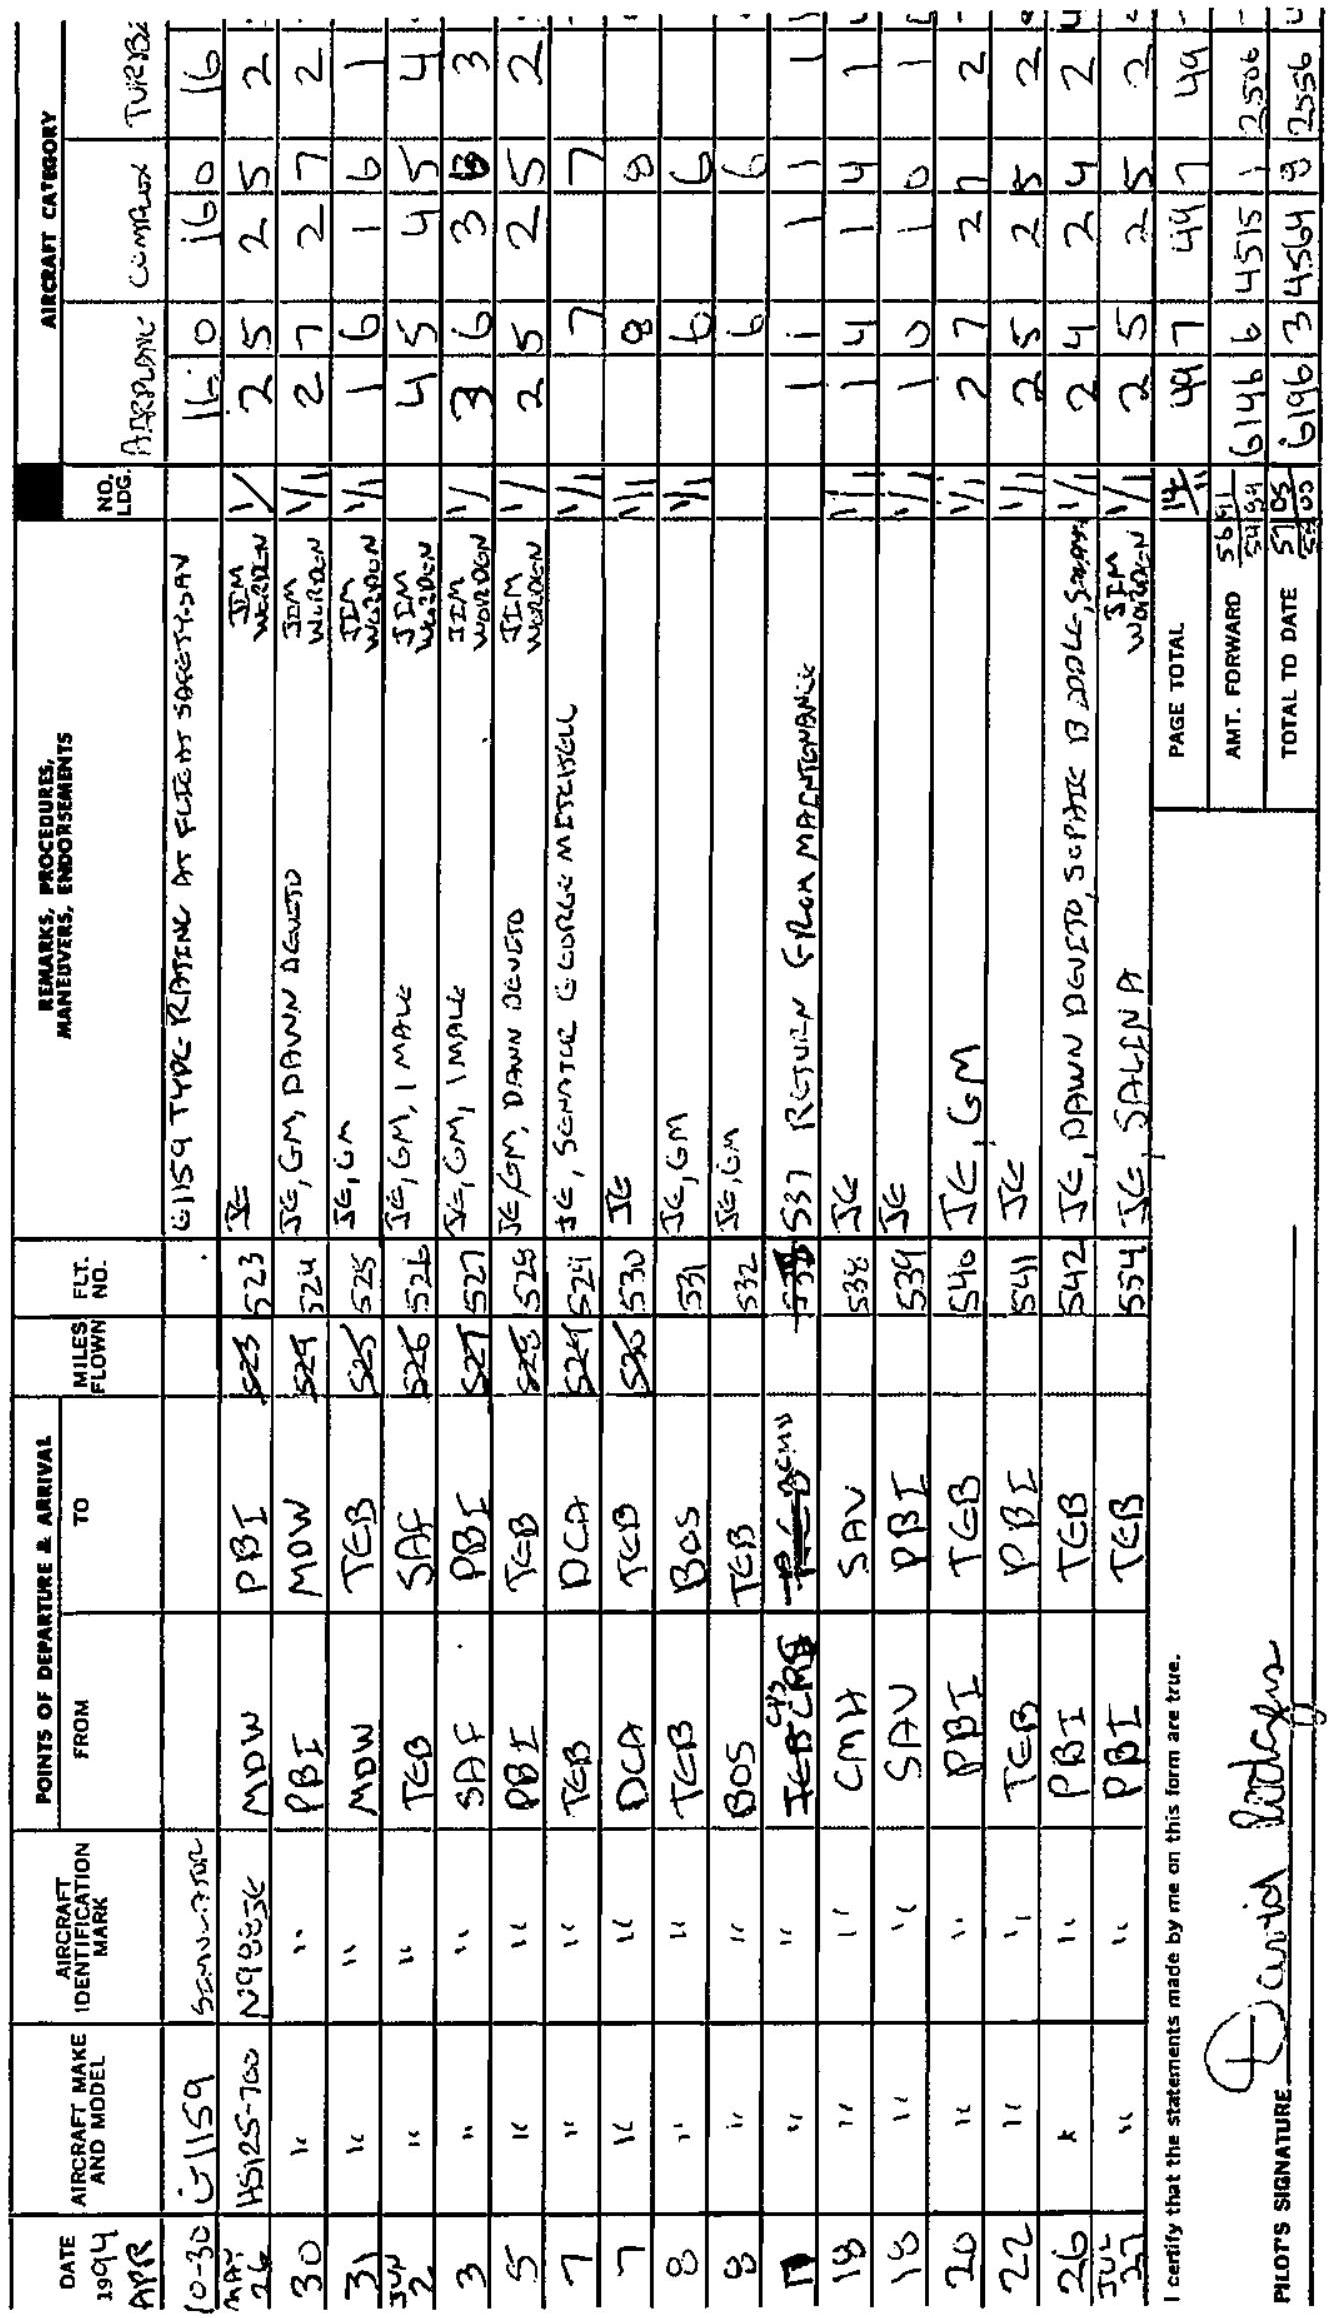 DATE 1994 AIRCRAFT MAKE AND MODEL AIRCRAFT IDENTIFICATION MARK POINTS OF DEPARTURE & ARRIVAL FROM TO MILES FLOWN FLT. NO. REMARKS, PROCEDURES, MANEUVERS, ENDORSEMENTS NO. LDG. AIRCRAFT CATEGORY AIRPLANE COMPLEX
APR 10-30 G1159 SIMULATOR G1159 TYPE RATING AT FLIGHT SAFETY-SAV 16 0 16 0 16
MAY 26 HS125-700 N988JE MDW PBI 523 523 JE JIM WORDEN 1/ 2 5 2 5 2
30 " " PBI MDW 524 524 JE, GM, DAWN DEVITO JIM WORDEN 1/1 2 7 2 7 2
31 " " MDW TEB 525 525 JE, GM JIM WORDEN 1/1 1 6 1 6 1
JUN 2 " " TEB SAF 526 526 JE, GM, 1 MALE JIM WORDEN 4 5 4 5 4
3 " " SAF PBI 527 527 JE, GM, 1 MALE JIM WORDEN 1/ 3 6 3 3
5 " " PBI TEB 528 528 JE, GM, DAWN DEVITO JIM WORDEN 1/ 2 5 2 5 2
7 " " TEB DCA 529 529 JE, SENATOR GEORGE MITCHELL 1/1 7 7
7 " " DCA TEB 530 530 JE 1/1 8 8
8 " " TEB BOS 531 JE, GM 1/1 6 6
8 " " BOS TEB 532 JE, GM 6 6
" " 537 RETURN FROM MAINTENANCE 1 1 1 1 1
18 " " CMH SAV 538 JE 1/1 1 4 1 4 1
18 " " SAV PBI 539 JE 1/1 1 0 1 0 1
20 " " PBI TEB 540 JE, GM 1/1 2 7 2 7 2
22 " " TEB PBI 541 JE 1/1 2 5 2 5 2
26 " " PBI TEB 542 JE, DAWN DEVITO, SOPHIE BIDDLE, 1/1 2 4 2 4 2
JUL 27 " " PBI TEB 554 JE, SALINA JIM WORDEN 1/1 2 5 2 5 2
I certify that the statements made by me on this form are true.
PAGE TOTAL 49 7 49 7 49
AMT. FORWARD 6146 6 4515 1 2506
PILOT'S SIGNATURE David Rodgers
TOTAL TO DATE 6196 3 4564 8 2556